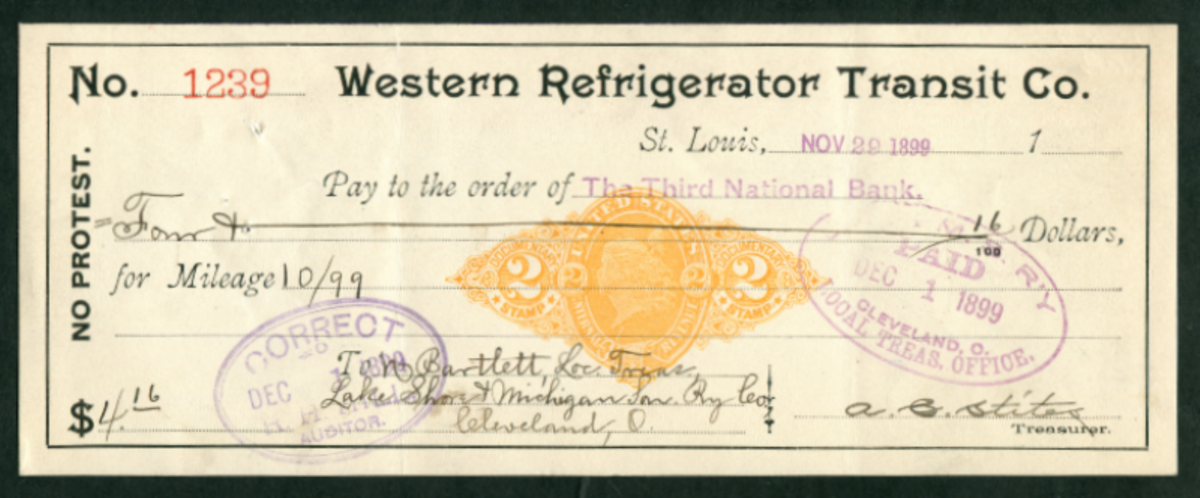 No. 1239 Western Refrigerator Transit Co.
St. Louis, NOV 29 1899 1
Pay to the order of The Third National Bank.
Four & 16/100 Dollars,
for Mileage 10/99
NO PROTEST.
UNITED STATES
DOCUMENTARY 2 STAMP
2 2
DOCUMENTARY 2 STAMP
INTERNAL REVENUE
M. S. R'Y
PAID
DEC 1 1899
CLEVELAND, O.
LOCAL TREAS. OFFICE.
CORRECT
DEC 1 1899
AUDITOR.
To W Bartlett, Loc. Treas.
Lake Shore & Michigan Son. Ry Co.
Cleveland, O.
$4.16
A. B. Stites
Treasurer.